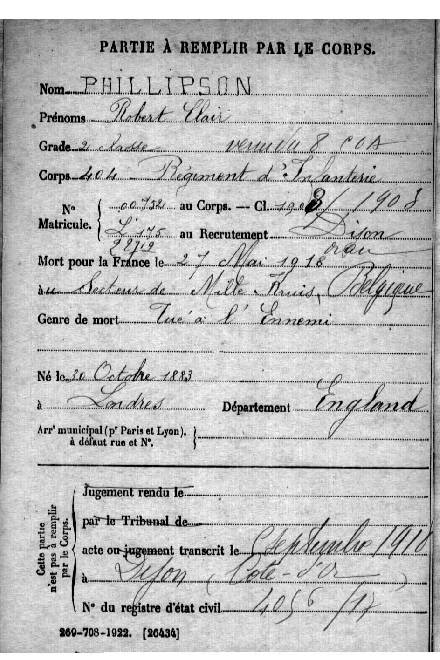 PARTIE À REMPLIR PAR LE CORPS.
Nom PHILLIPSON
Prénoms Robert Clair
Grade 2 classe venu du 8 COA
Corps 404 Régiment d'Infanterie
N° Matricule. 00732 au Corps. — Cl. 1903 / 1908
L' 175 au Recrutement Dijon
22712
Mort pour la France le 27 Mai 1918
au Secteur de Mille Kruis, Belgique
Genre de mort Tué à l'Ennemi
Né le 30 Octobre 1883
à Londres Département England
Arrt municipal (pr Paris et Lyon),
à défaut rue et N°.
Cette partie n'est pas à remplir par le Corps.
Jugement rendu le
par le Tribunal de
acte ou jugement transcrit le Septembre
à Dijon (Côte-d'Or)
N° du registre d'état civil 4056/17
269-708-1922. [26434]